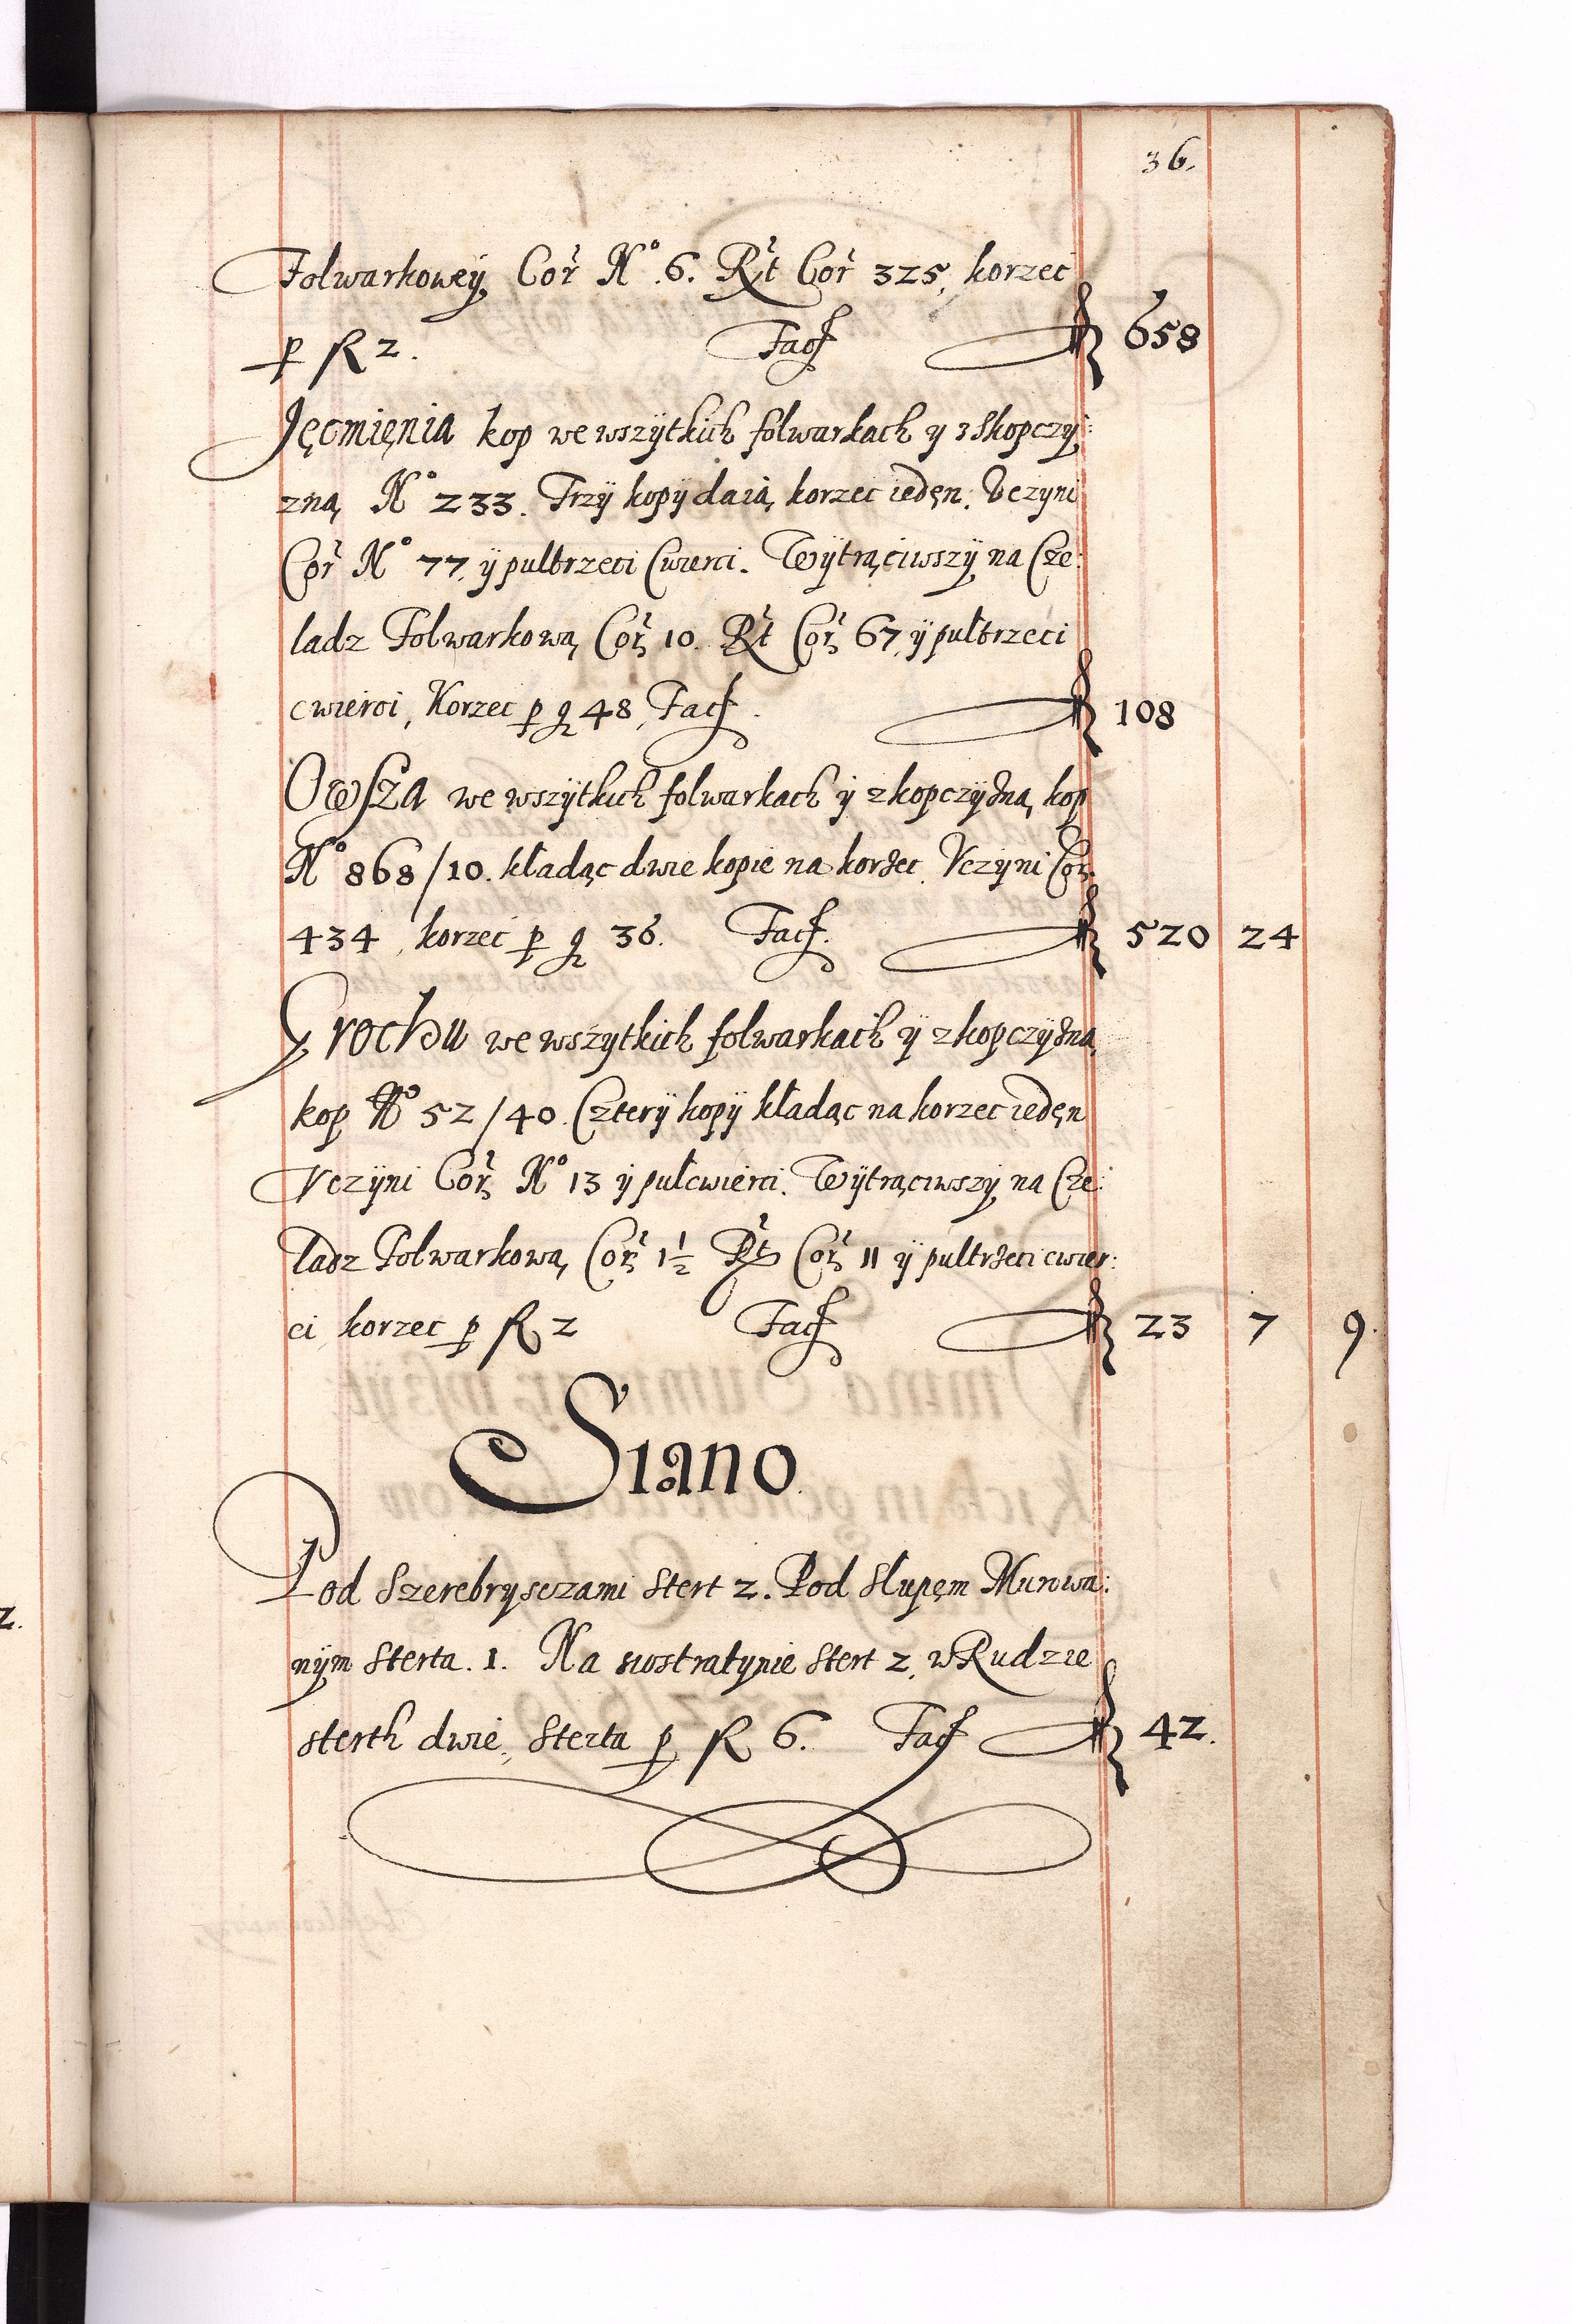 36.
Folwarkowey Cor̃ N° 6. R̃t Cor̃ 325, korzec
p fl 2. Facit 658
Jęcmięnia kop we wszÿtkich folwarkach y z Skopczy:
zną N° 233. Trzÿ kopÿ daią korzec iedęn. Vczyni
Cor̃ N° 77 ÿ pultrzeci Cwierci. Wÿtrąciwszÿ na Cze:
ladz Folwarkową Cor̃ 10. R̃t Cor̃ 67 ÿ pułtrzeci
cwierci, Korzec p g 48, Facit. 108
Owsza we wszÿtkich folwarkach ÿ zkopczÿzną kop
N° 868/10. kładąc dwie kopie na korzec. Vczÿni Cor̃
434, korzec p g 36. Facit. 520 24
Grochu we wszÿtkich folwarkach ÿ zkopczÿzną
kop N° 52/40. Czterÿ kopÿ kładąc na korzec iedęn
Vczÿni Cor̃ N° 13 ÿ pułcwierci. Wÿtrąciwszÿ na Cze:
ladz Folwarkową Cor̃ 1½ R̃t Cor̃ 11 ÿ pultrzeci cwier:
ci korzec p fl 2 Facit 23 7 9.
Siano.
Pod Szerebrysczami Stert 2. Pod Slupęm Murowa:
nÿm Sterta. 1. Na stert 2, w Rudzie
sterth dwie, Sterta p fl 6. Facit 42.